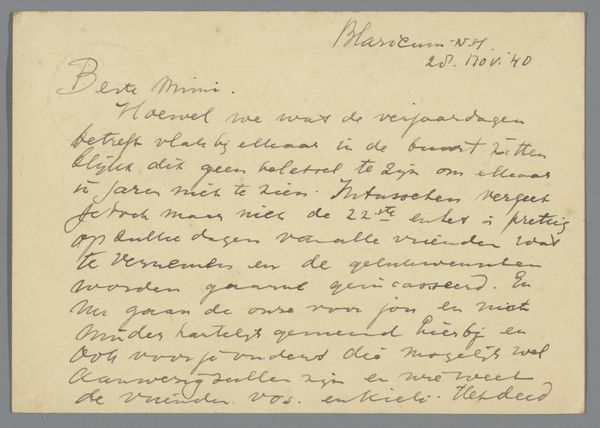 Blaricum N.H.
28. Nov. '40
Beste Mimi.
Hoewel we wat de verjaardagen
betreft vlak bij elkaar in de buurt zitten
blijkt dit geen beletsel te zijn om elkaar
in jaren niet te zien. Intusschen vergeet
je toch maar niet de 22ste en het is prettig
op zulke dagen van alle vrienden wat
te vernemen en de gelukwenschen
worden gaarne geincasseerd. En
nu gaan de onze voor jou en niet
minder hartelijk gemeend hierbij en
ook voor je ouders die mogelijk wel
aanwezig zullen zijn en wie weet
de vrienden Vos. en Het deed